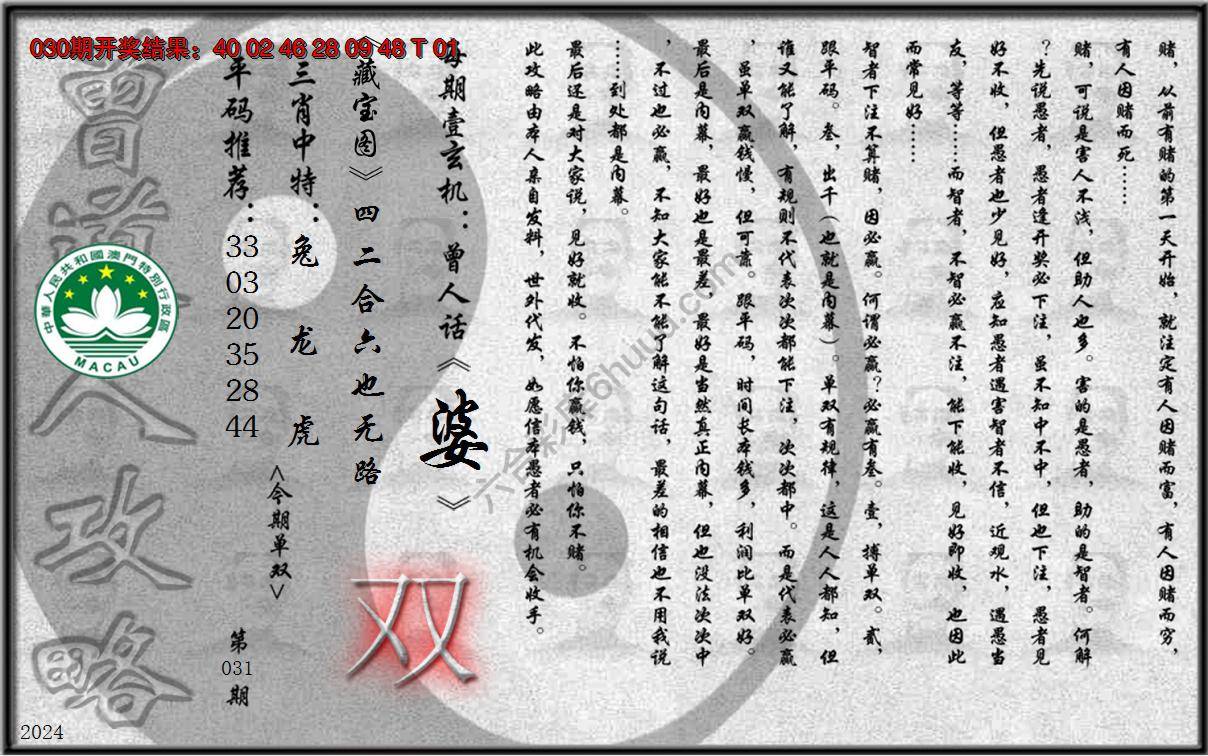 030期开奖结果：40 02 46 28 09 48 T 01
赌，从前有赌的第一天开始，就注定有人因赌而富，有人因赌而穷，
有人因赌而死……
赌，可说是害人不浅，但助人也多。害的是愚者，助的是智者。何解
？先说愚者，愚者逢开奖必下注，虽不知中不中，但也下注，愚者见
好不收，但愚者也少见好，应知愚者遇害智者不信，近观水，遇愚当
友，等等……而智者，不智必赢不注，能下能收，见好即收，也因此
而常见好……
智者下注不算赌，因必赢。何谓必赢？必赢有叁。壹，搏单双。贰，
跟平码。叁，出千（也就是内幕）。单双有规律，这是人人都知，但
谁又能了解，有规则不代表次次都能下注，次次都中。而是代表必赢
，虽单双赢钱慢，但可靠。跟平码，时间长本钱多，利润比单双好。
最后是内幕，最好也是最差，最好是当然真正内幕，但也没法次次中
，不过也必赢，不知大家能不能了解这句话，最差的相信也不用我说
……到处都是内幕。
最后还是对大家说，见好就收。不怕你赢钱，只怕你不赌。
此攻略由本人亲自发料，世外代发，如愿信本愚者必有机会收手。
每期壹玄机：曾人话《婆》
《藏宝图》四二合六也无路
三肖中特：兔 龙 虎
<今期单双>
双
平码推荐：33 03 20 35 28 44
第031期
曾道人攻略
中華人民共和國澳門特別行政區
MACAU
六合彩库6huuu.com
2024